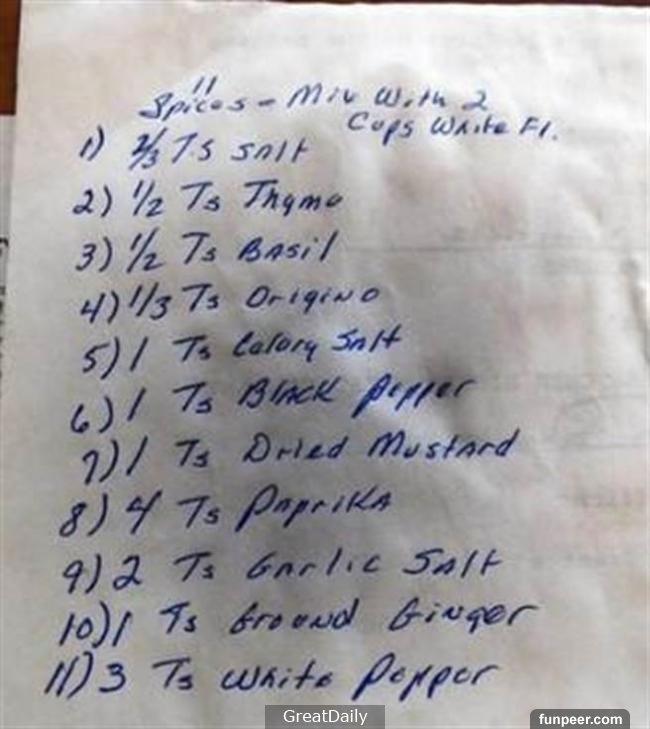 11
Spices - Mix With 2
Cups White Fl.
1) 2/3 Ts Salt
2) 1/2 Ts Thyme
3) 1/2 Ts Basil
4) 1/3 Ts Origino
5) 1 Ts Celary Salt
6) 1 Ts Black Pepper
7) 1 Ts Dried Mustard
8) 4 Ts Paprika
9) 2 Ts Garlic Salt
10) 1 Ts Ground Ginger
11) 3 Ts White Pepper
GreatDaily
funpeer.com